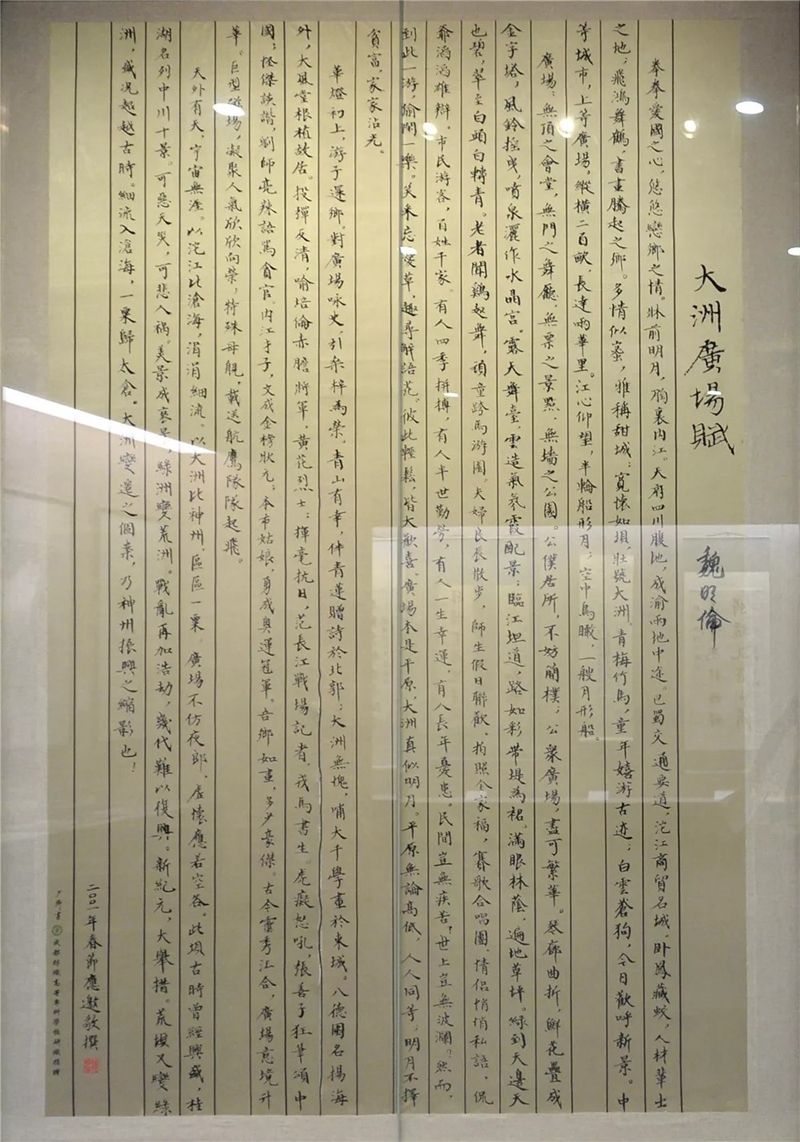 大洲廣場賦
魏明倫
拳拳愛國之心，悠悠戀鄉之情。牀前明月，胸裏内江。天府四川腹地，成渝兩地中途。巴蜀交通要道，沱江商貿名城。卧鳳藏蛟，人材華士
之地；飛鴻舞鶴，書畫騰起之鄉。多情似蜜，雅稱甜城；寬懷如壩，壯號大洲。青梅竹馬，童年嬉游古迹；白雲蒼狗，今日歡呼新景。中
等城市，上等廣場，縱橫二百畝，長達兩華里。江心仰望，半輪船形月；空中鳥瞰，一艘月形船。
廣場：無頂之會堂，無門之舞廳，無票之景點，無墻之公園。公僕居所，不妨簡樸；公衆廣場，盡可繁華。琴廊曲折，鮮花疊成
金字塔，風鈴摇曳，噴泉灑作水晶宫。露天舞臺，雲造氣氛霞配景；臨江坦道，路如彩帶堤爲裙。滿眼林蔭，遍地草坪。緑到天邊天
也碧，翠至白頭白轉青。老者聞鷄起舞，頑童跨馬游園。夫婦良辰散步，師生假日聯歡。拍照全家福，賽歌合唱團。情侣悄悄私語，侃
爺滔滔雄辯。市民游客，百姓千家。有人四季拼搏，有人半世勤勞，有人一生幸運，有人長年憂患。民間豈無疾苦，世上豈無波瀾。然而，
到此一游，偷閑一樂。笑采忘憂草，趣尋解語花。彼此輕鬆，皆大歡喜。廣場本是平原，大洲真似明月。平原無論高低，人人同等；明月不擇
貧富，家家沾光。
華燈初上，游子還鄉。對廣場咏史，引桑梓爲榮。青山有幸，伴青蓮贈詩於北郭；大洲無愧，哺大千學畫於東城。八德園名揚海
外，大風堂根植故居。投彈反清，喻培倫赤膽將軍，黄花烈士；揮毫抗日，范長江戰場記者，戎馬書生。虎癡怒吼，張善子狂筆頌中
國；怪傑詼諧，劉師亮辣語罵貪官。内江才子，文成金榜狀元；本市姑娘，勇成奥運冠軍。吾鄉如畫，多少豪傑。古今靈秀江合，廣場意境升
華。巨型磁場，凝聚人氣欣欣向榮，特殊母艦，載送航鷹隊隊起飛。
天外有天，宇宙無涯。以沱江比滄海，涓涓細流。以大洲比神州，區區一粟。廣場不仿夜郎，虚懷應若空谷。此壩古時曾經興盛，桂
湖名列中川十景。可怨天災，可悲人禍。美景成哀景，緑洲變荒洲。戰亂再加浩劫，幾代難以復興。新紀元，大舉措。荒壩又變緑
洲，盛况超越古時。細流入滄海，一粟歸太倉。大洲變遷之個案，乃神州振興之縮影也！
二〇〇一年春節應邀敬撰